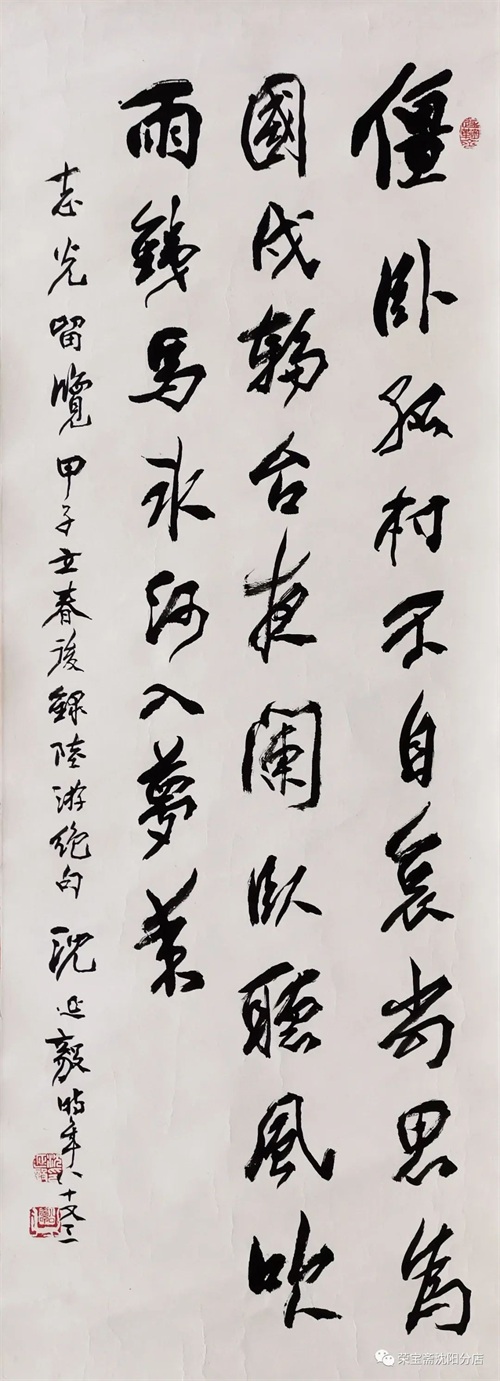 僵卧孤村不自哀尚思為
國戍輪台夜闌卧聽風吹
雨鐵馬冰河入夢來
志光留覽甲子立春後錄陸游絕句沈延毅時年八十又二
荣宝斋沈阳分店